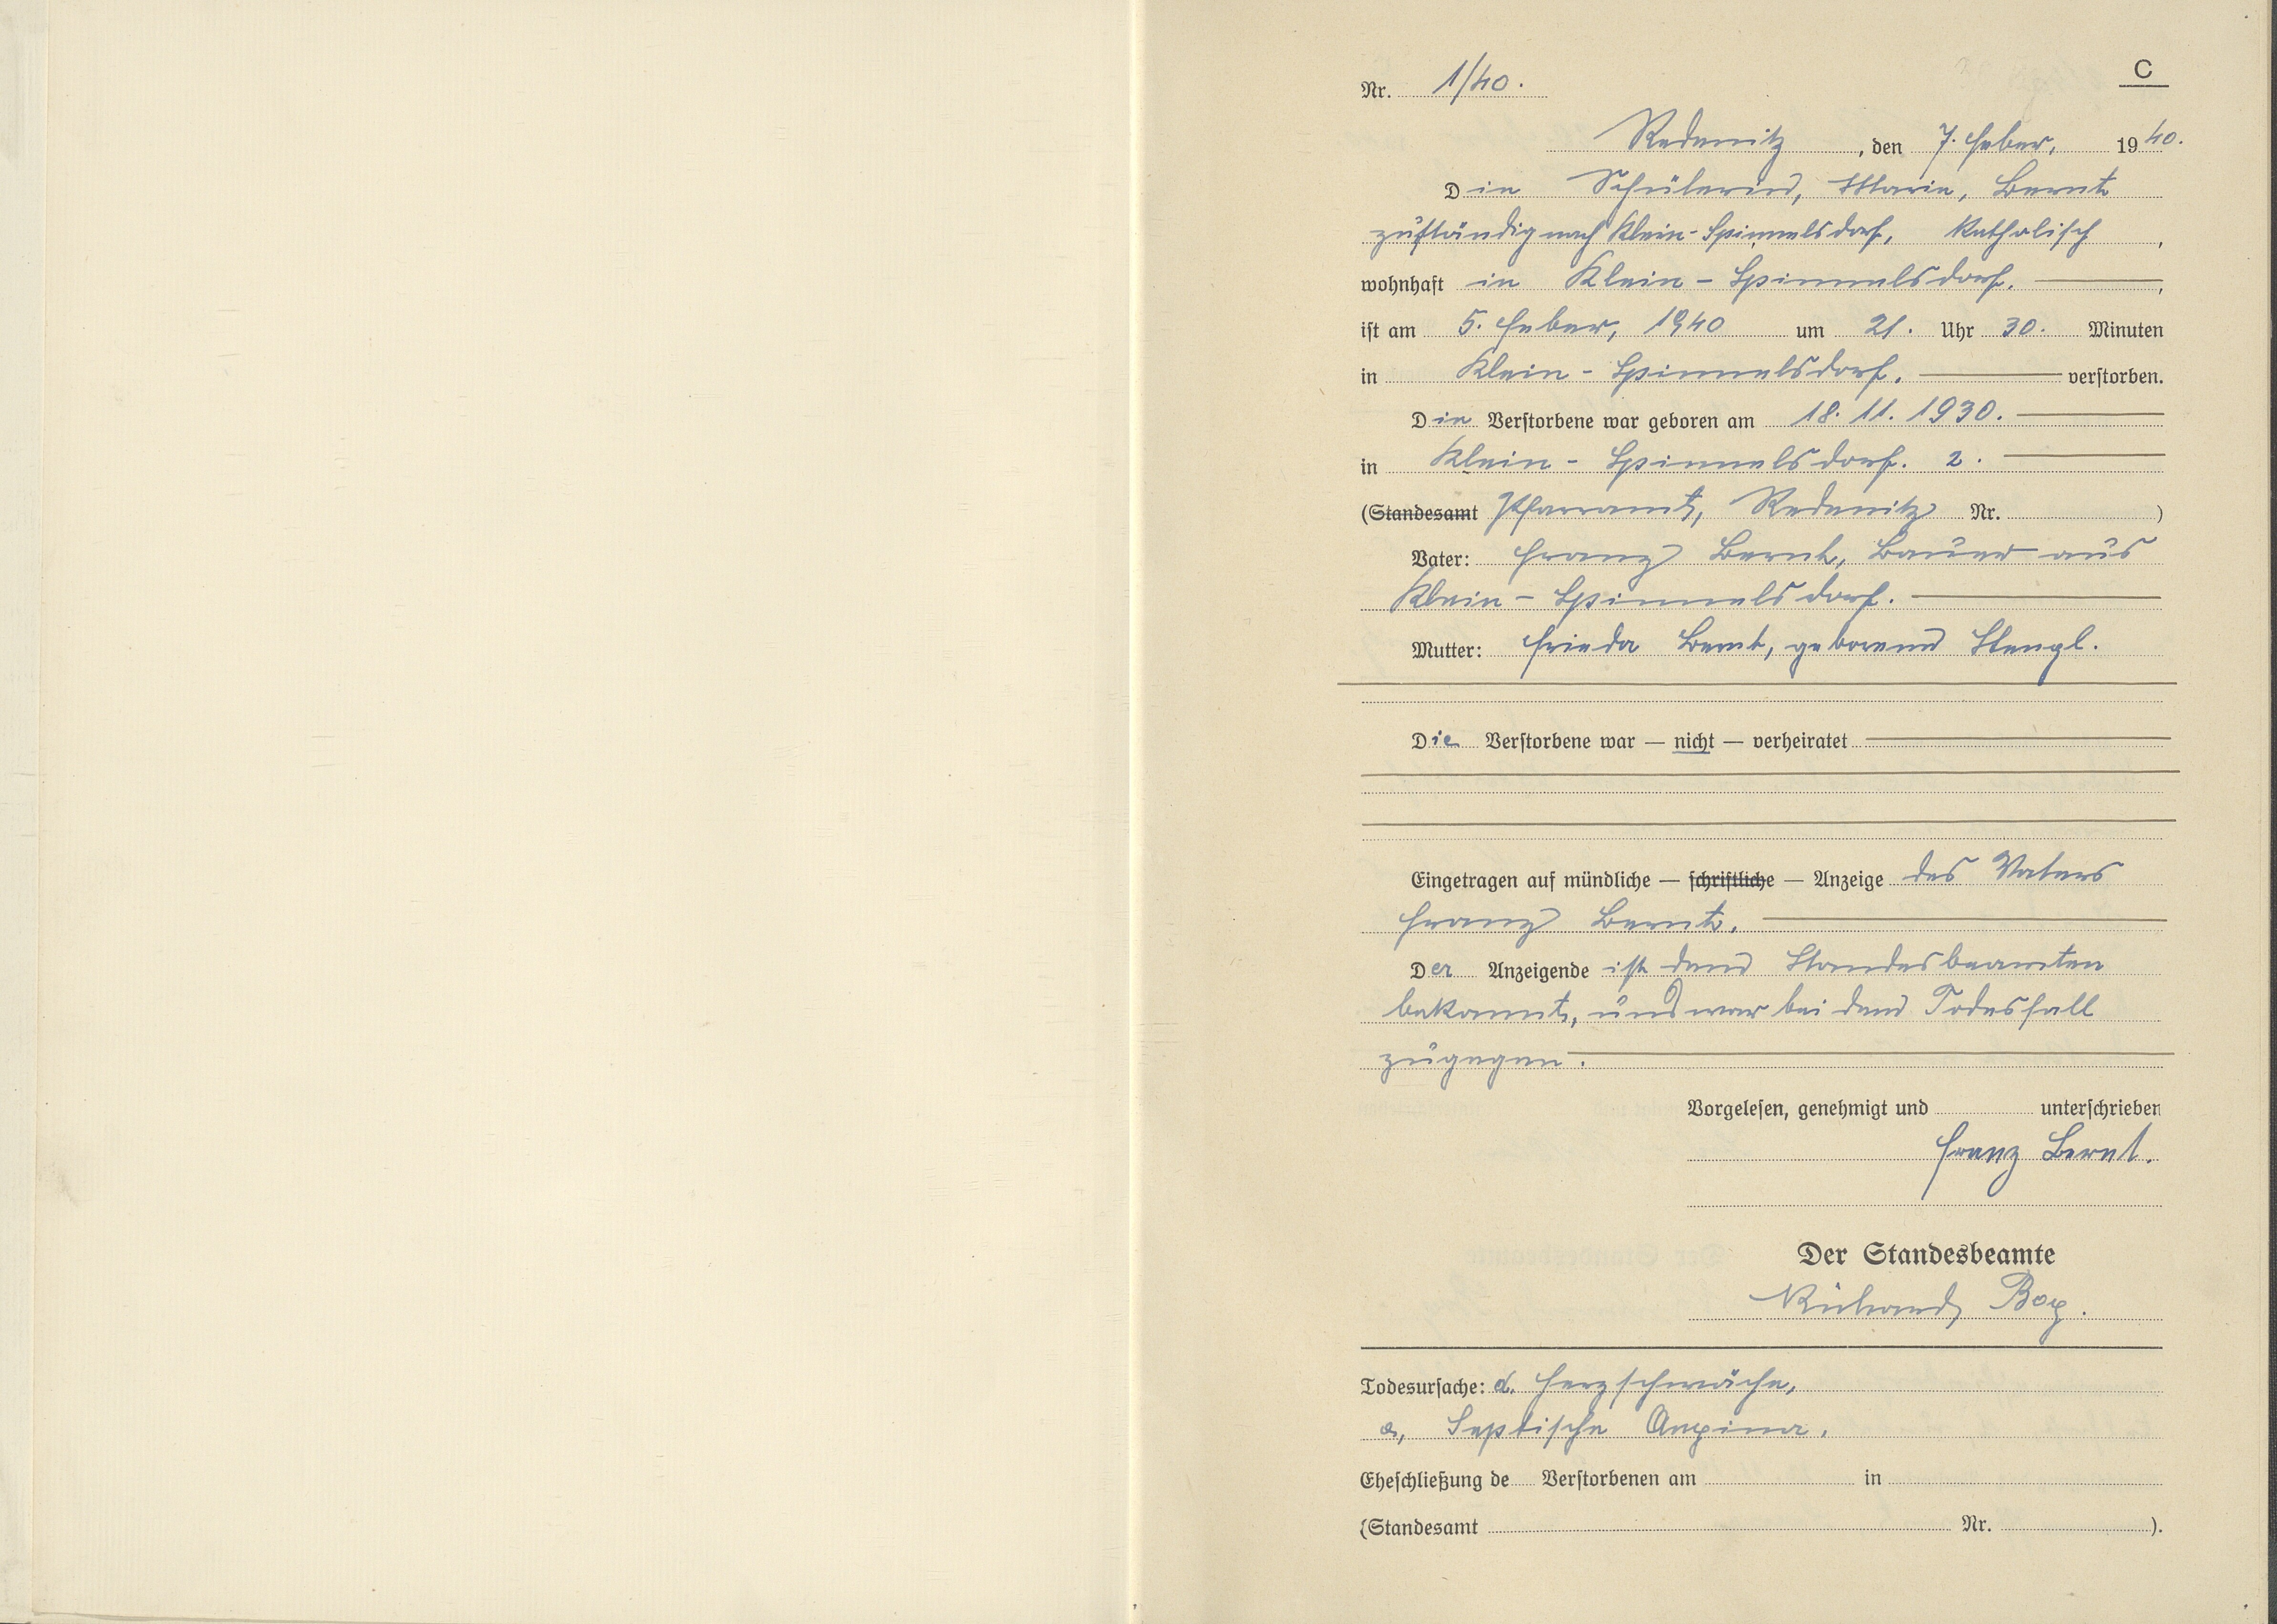 C
Nr. 1/40.
Redenitz, den 7. Feber, 1940.
Die Schülerin, Maria, Bernt
zuständig nach Klein-Spinnelsdorf, Katholisch,
wohnhaft in Klein-Spinnelsdorf.
ist am 5. Feber, 1940 um 21. Uhr 30. Minuten
in Klein-Spinnelsdorf. verstorben.
Die Verstorbene war geboren am 18. 11. 1930.
in Klein-Spinnelsdorf. 2.
(Standesamt Pfarramt, Redenitz Nr. )
Vater: Franz Bernt, Bauer aus
Klein-Spinnelsdorf.
Mutter: Frieda Bernt, geborene Stengl.
Die Verstorbene war — nicht — verheiratet
Eingetragen auf mündliche — schriftliche — Anzeige des Vaters
Franz Bernt.
Der Anzeigende ist dem Standesbeamten
bekannt, und war bei dem Todesfall
zugegen.
Vorgelesen, genehmigt und unterschrieben
Franz Bernt.
Der Standesbeamte
Richard
Todesursache: d. Herzschwäche,
a, Septische Angina.
Eheschließung de Verstorbenen am in
(Standesamt Nr. ).